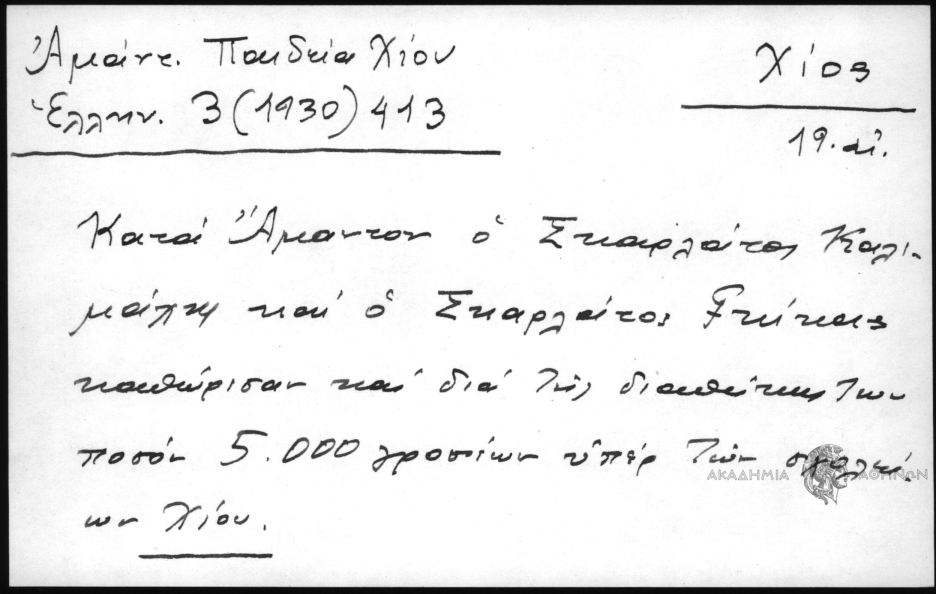 Ἀμάντ. Παιδεία Χίου
Ἑλλην. 3 (1930) 413
Χίος
19. αἰ.
Κατά Ἄμαντον ὁ Σκαρλάτος Καλι-
μάχης καί ὁ Σκαρλάτος Γκίκας
καθώρισαν καί διά τῆς διαθήκης των
ποσόν 5.000 γροσίων ὑπέρ τῶν σχολεί-
ων Χίου.
ΑΚΑΔΗΜΙΑ ΑΘΗΝΩΝ